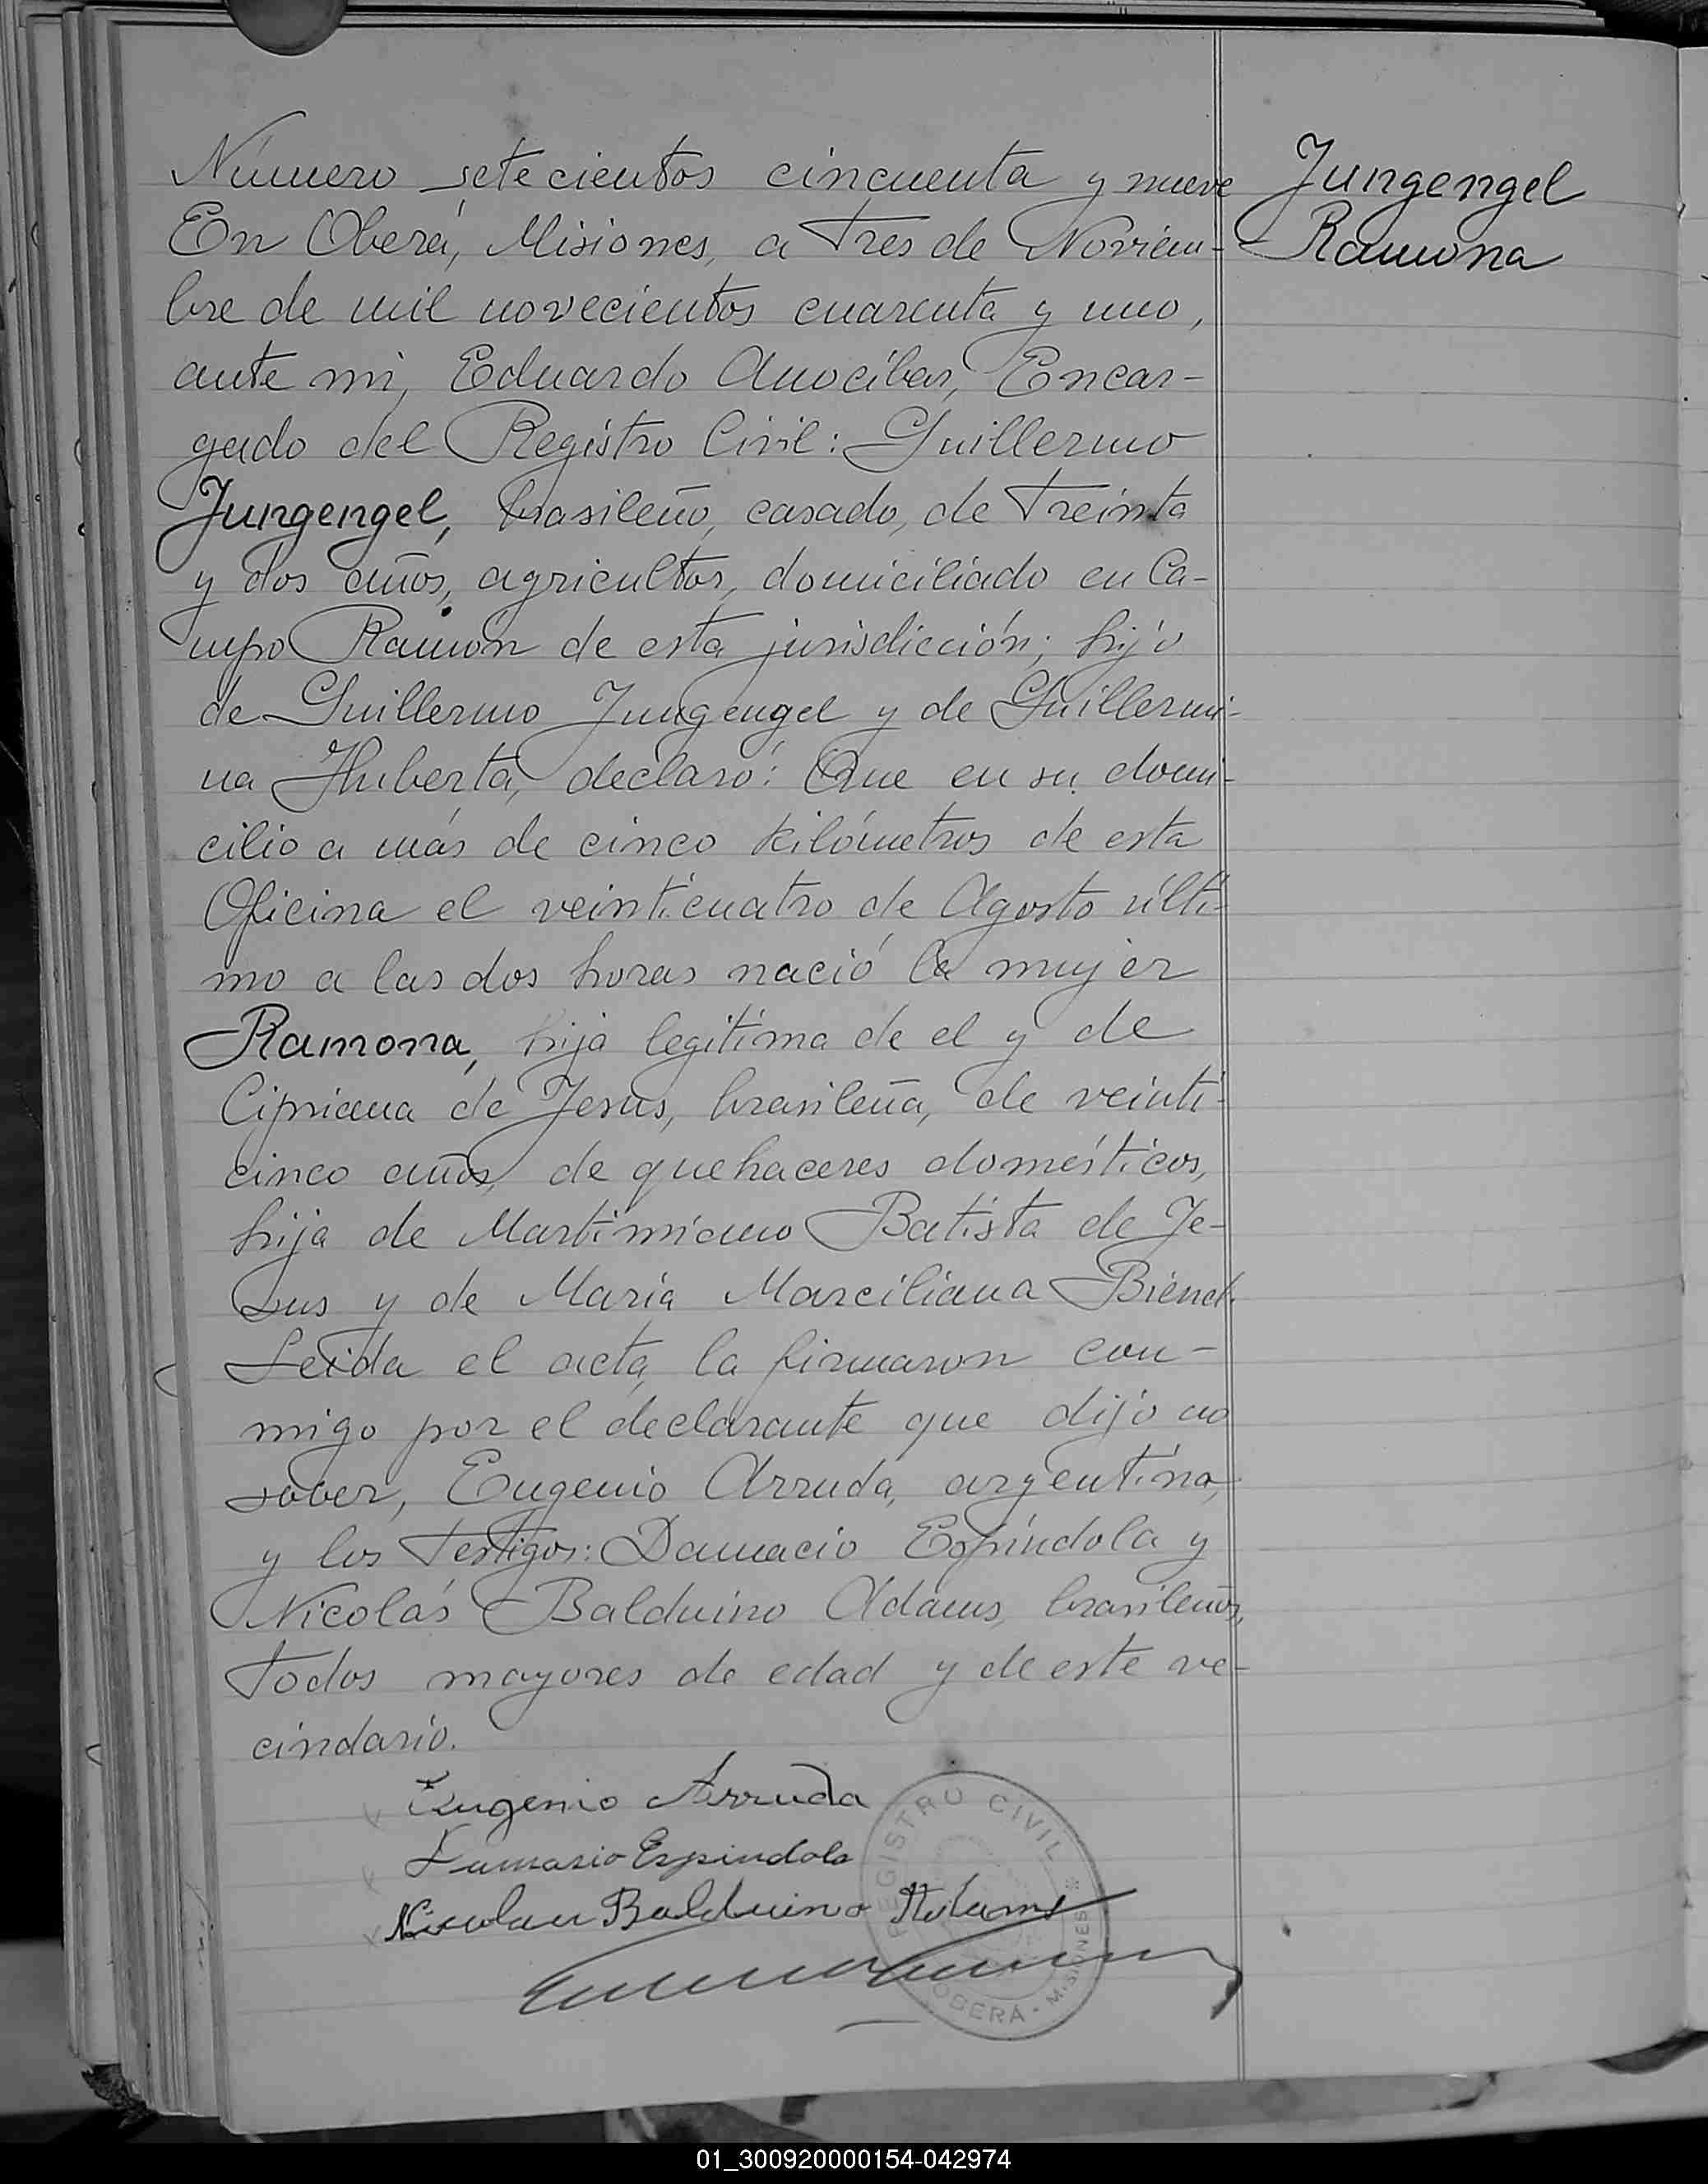 Número setecientos cincuenta y nueve
En Oberá, Misiones, a tres de Noviem-
bre de mil novecientos cuarenta y uno,
ante mi, Eduardo Anocibar, Encar-
gado del Registro Civil: Guillermo
Jungengel, brasileño, casado, de treinta
y dos años, agricultor, domiciliado en Ca-
mpo Ramón de esta jurisdicción; hijo
de Guillermo Jungengel y de Guillermi-
na Huberta, declaró: Que en su domi-
cilio a más de cinco kilómetros de esta
Oficina el veinticuatro de Agosto últi-
mo a las dos horas nació la mujer
Ramona, hija legítima de el y de
Cipriana de Jesús, brasileña, de veinti-
cinco años, de quehaceres domésticos,
hija de Martimiano Batista de Je-
sus y de María Marciliana Bienek.
Leida el acta, la firmaron con-
migo por el declarante que dijo no
saber, Eugenio Arruda, argentino,
y los testigos: Damacio Espíndola y
Nicolás Balduino Adams, brasileños,
todos mayores de edad y de este ve-
cindario.
Jungengel
Ramona
Eugenio Arruda
Damasio Espindola
Nicolau Balduino Adams
REGISTRO CIVIL
OBERÁ - MISIONES
01_300920000154-042974